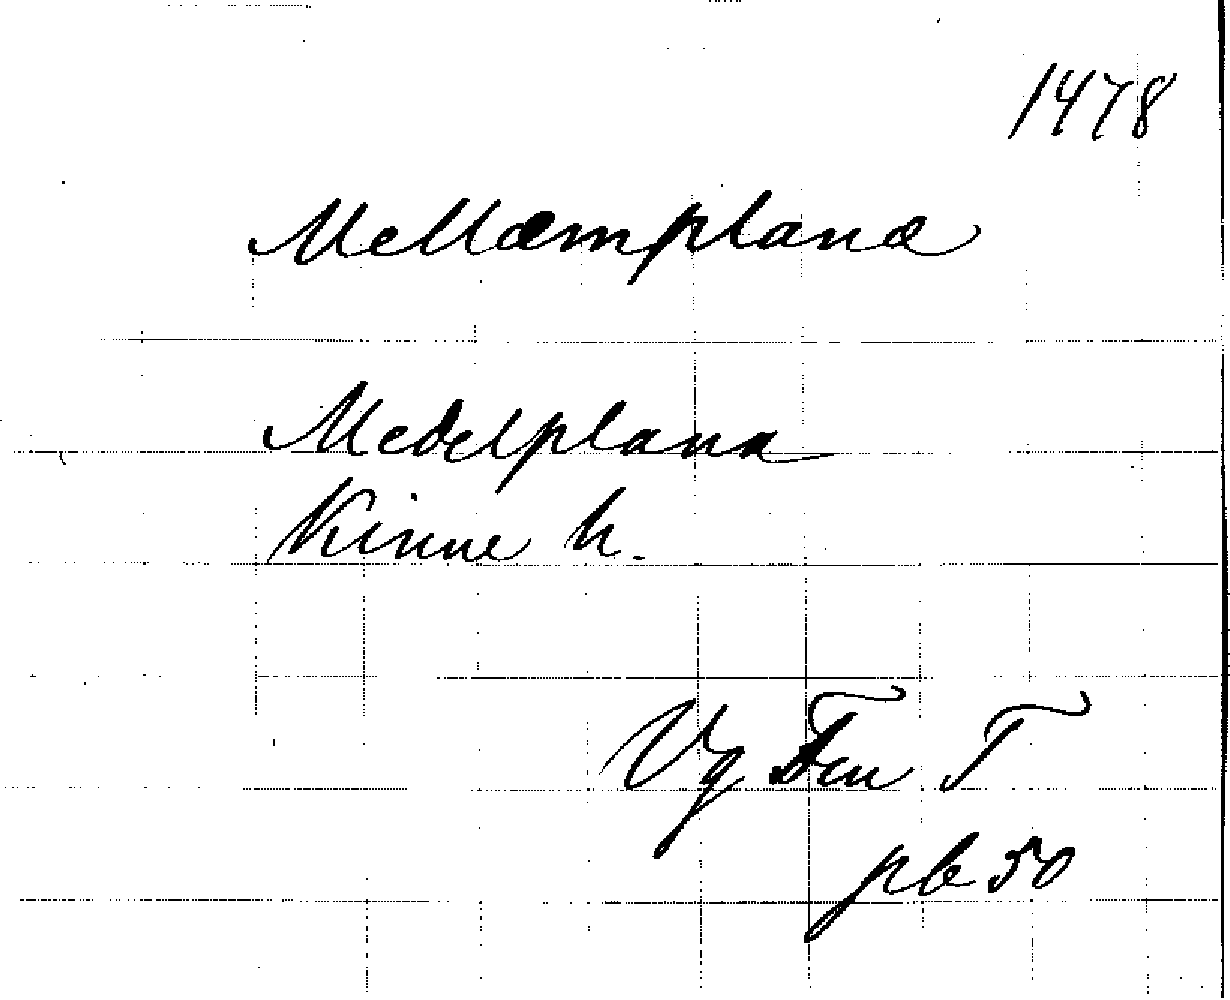 1478
Mellæmplanæ
Medelplana
Kinne h.
Vg Fru T
pb 50